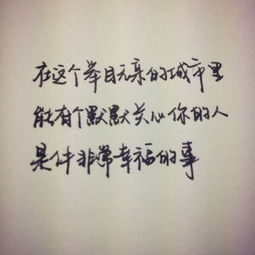 在这个举目无亲的城市里
能有个默默关心你的人
是件非常幸福的事